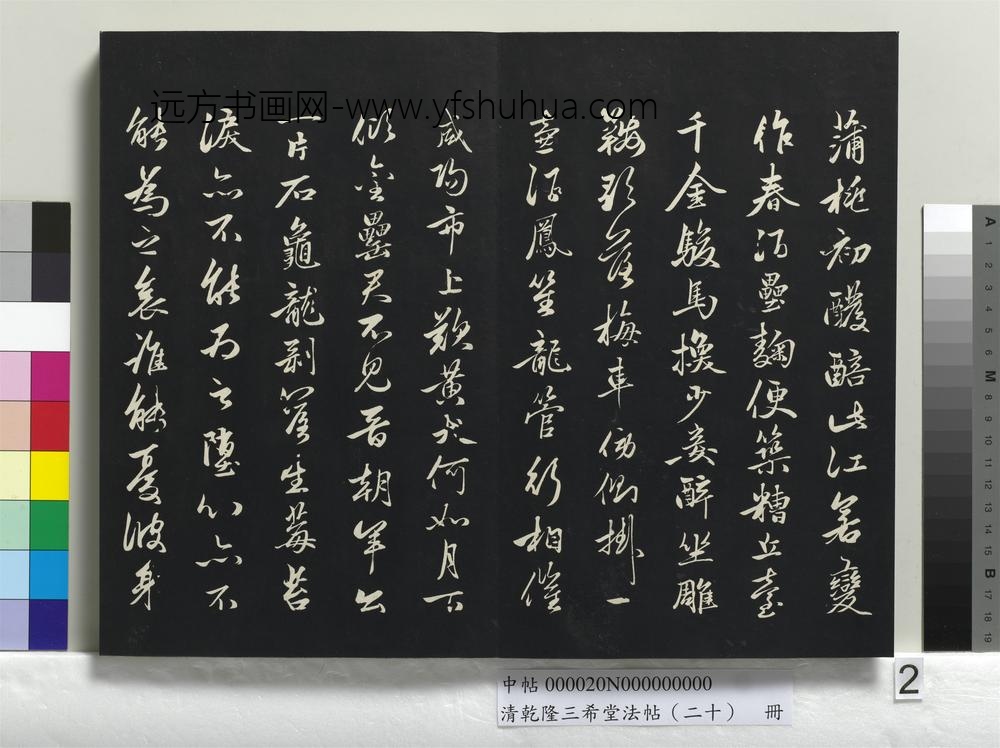 远方书画网-www.yfshuhua.com
蒲桃初醱醅此江若變
作春酒壘麴便築糟丘臺
千金駿馬換少妾醉坐雕
鞍歌落梅車傍側掛一
壺酒鳳笙龍管行相催
咸陽市上歎黃犬何如月下
傾金罍君不見晉朝羊公
一片石龜龍剝落生莓苔
淚亦不能為之墮心亦不
能為之哀誰能憂彼身
中帖 000020N000000000
清乾隆三希堂法帖（二十） 冊
2
A 1 2 3 4 5 6 M 8 9 10 11 12 13 14 15 B 17 18 19